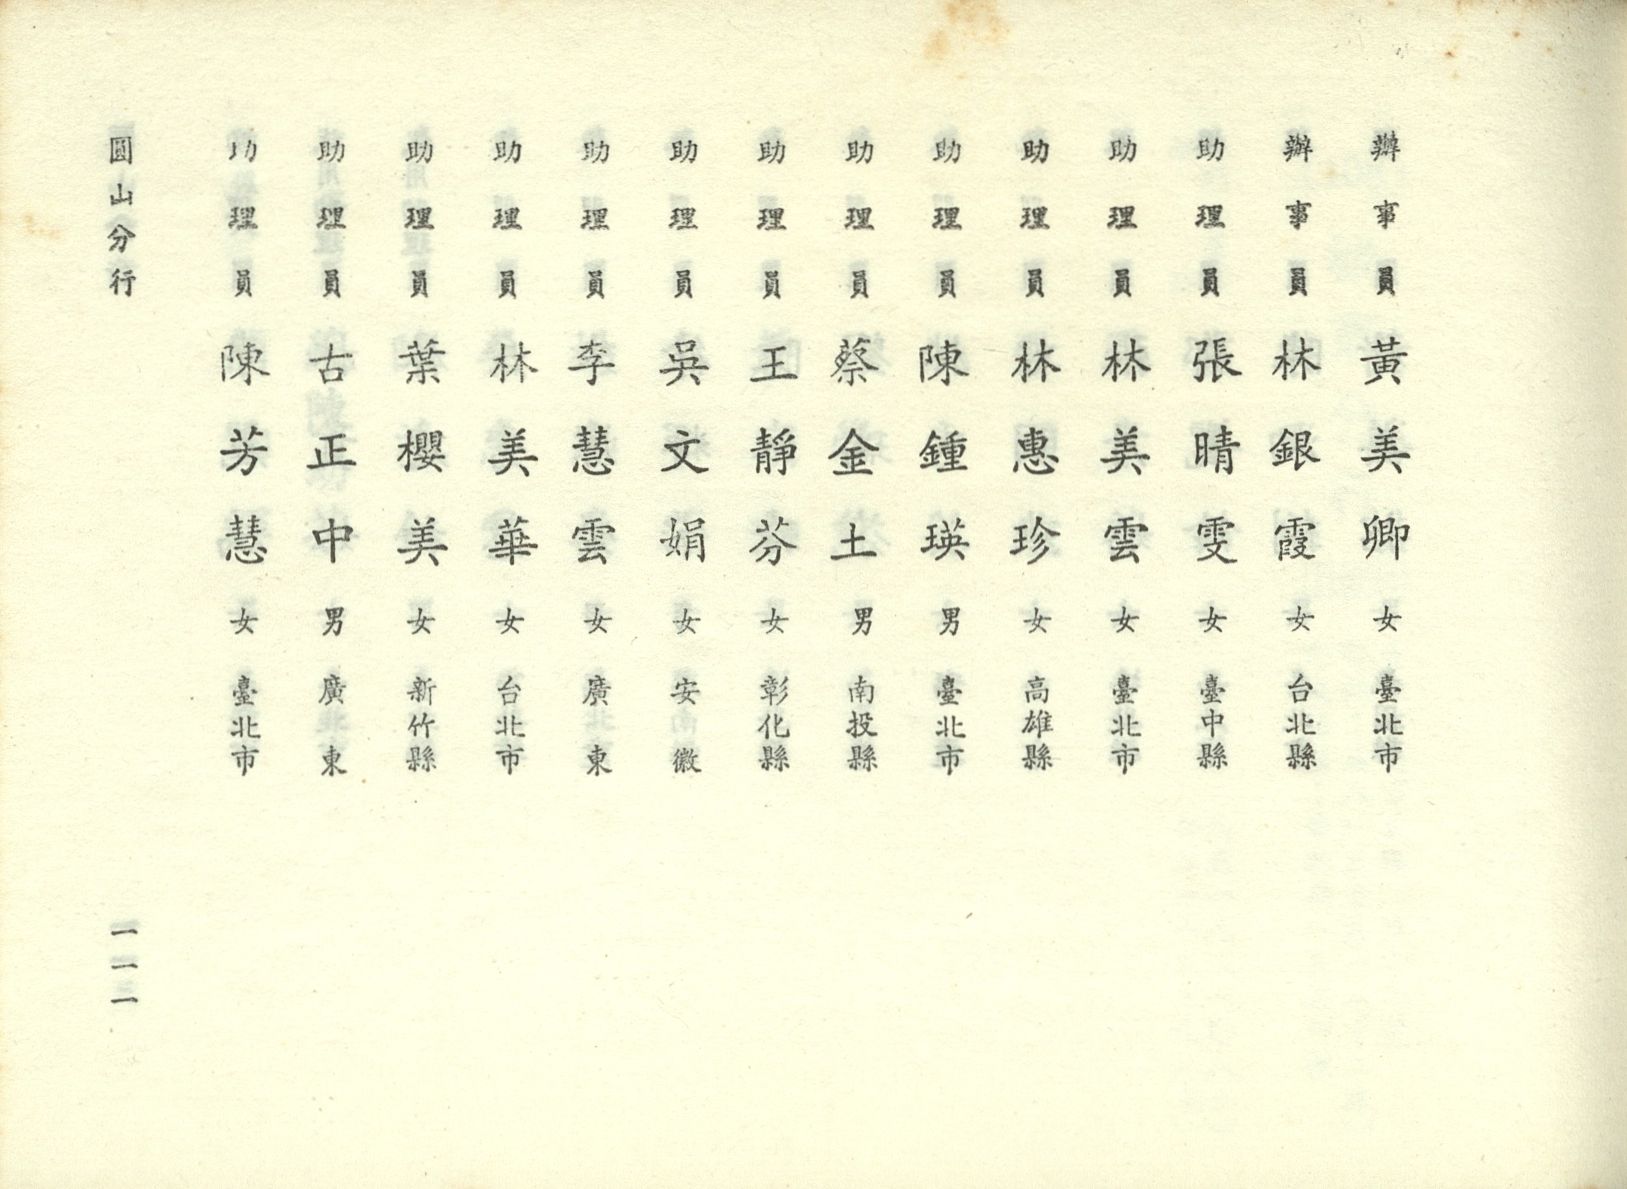 辦事員 黃美卿 女 臺北市
辦事員 林銀霞 女 台北縣
助理員 張晴雯 女 臺中縣
助理員 林美雲 女 臺北市
助理員 林惠珍 女 高雄縣
助理員 陳鍾瑛 男 臺北市
助理員 蔡金土 男 南投縣
助理員 王靜芬 女 彰化縣
助理員 吳文娟 女 安徽
助理員 李慧雲 女 廣東
助理員 林美華 女 台北市
助理員 葉櫻美 女 新竹縣
助理員 古正中 男 廣東
助理員 陳芳慧 女 臺北市
圓山分行 一一一